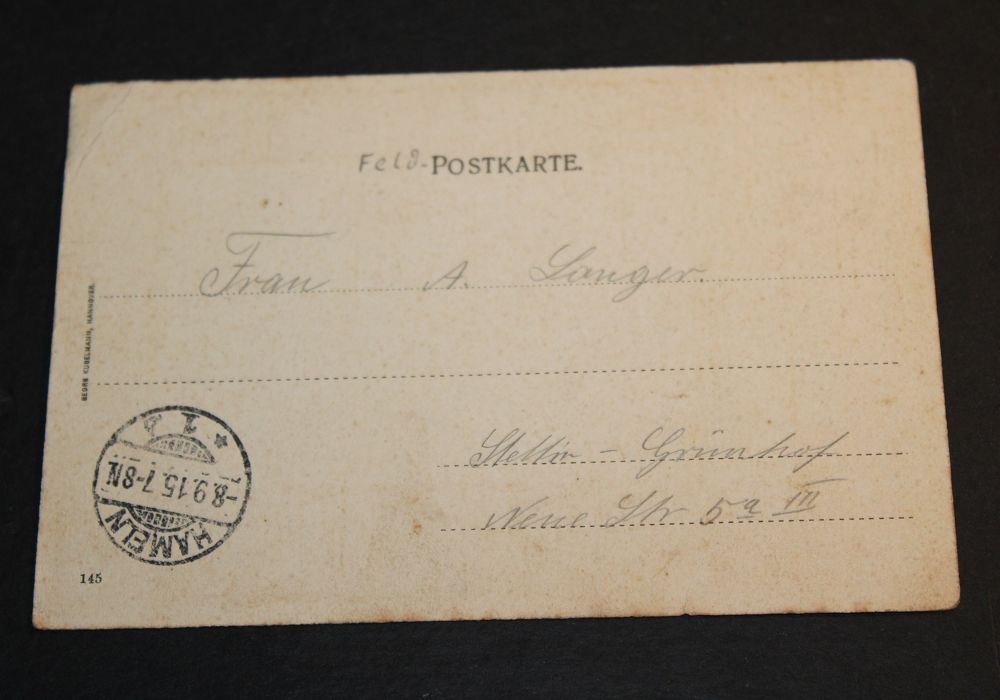 Feld-POSTKARTE.
Frau A. Langer.
GEORG KUGELMANN, HANNOVER.
Stettin - Grünhof
Neue Str. 5a III
HAMELN
-8.9.15.7-8N.
* 1 b
145